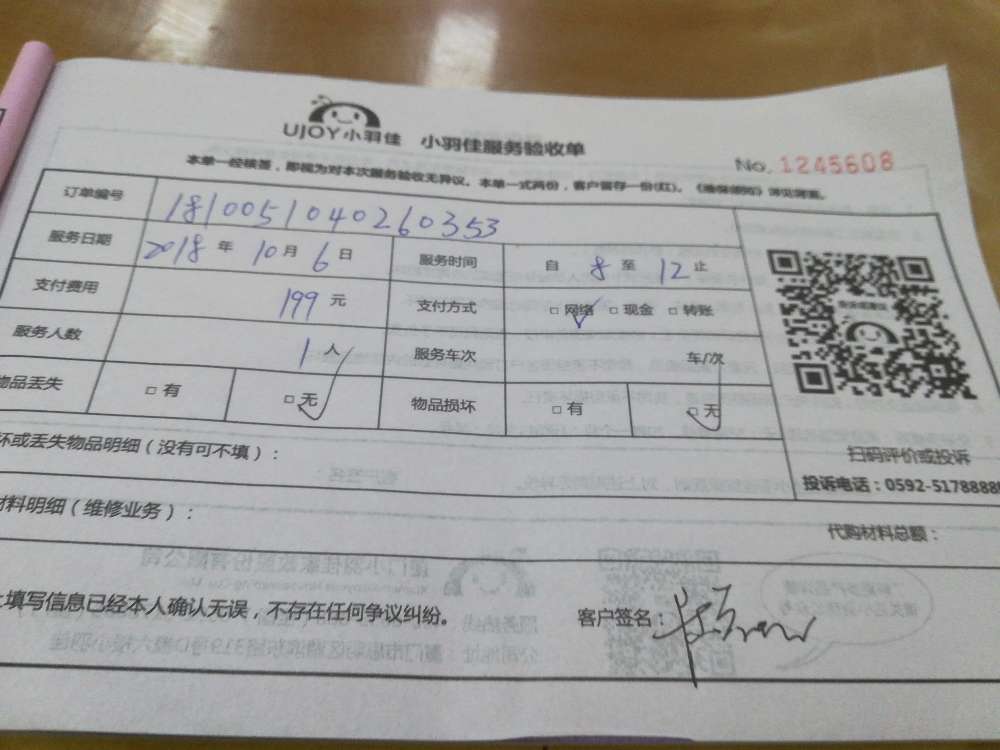 UJOY小羽佳 小羽佳服务验收单
No. 1245608
本单一经核签，即视为对本次服务验收无异议。本单一式两份，客户留存一份(红)。
订单编号 1810051040260353
服务日期 2018年10月6日 服务时间 自8至12止
支付费用 199元 支付方式 □网络 □现金 □转账
服务人数 1人 服务车次 车/次
物品丢失 □有 □无 物品损坏 □有 □无
坏或丢失物品明细（没有可不填）：
扫码评价或投诉
投诉电话：0592-5178888
材料明细（维修业务）：
代购材料总额：
上填写信息已经本人确认无误，不存在任何争议纠纷。
客户签名：